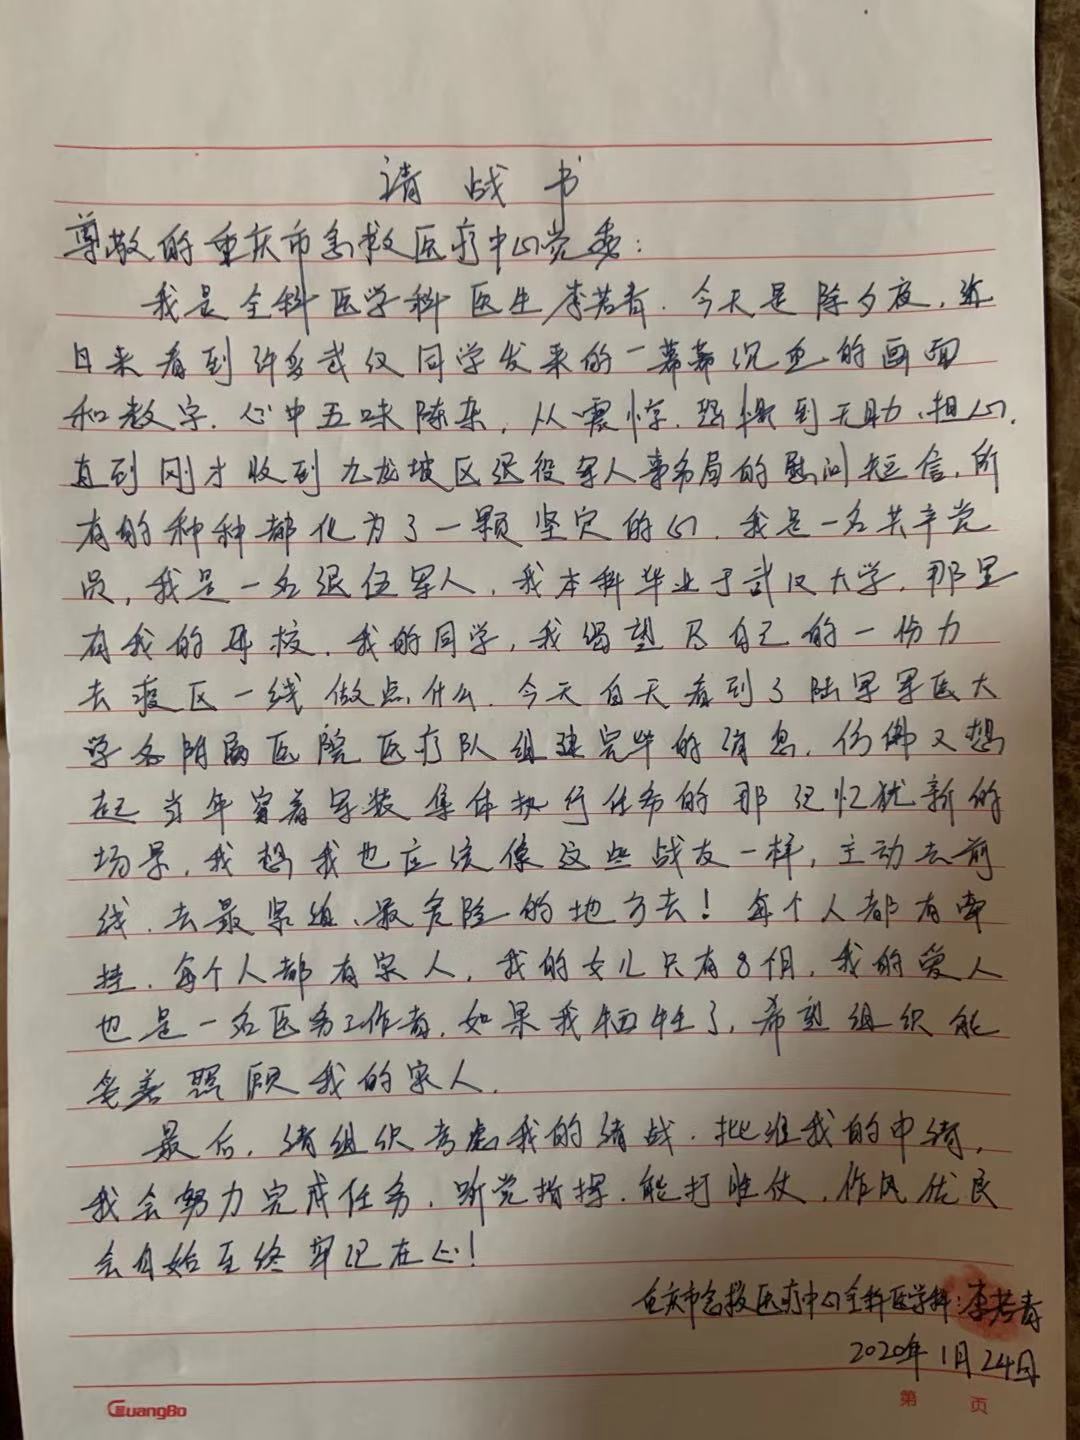 请战书
尊敬的重庆市急救医疗中心党委：
我是全科医学科医生李若青.今天是除夕夜,近
日来看到许多武汉同学发来的一幕幕沉重的画面
和数字.心中五味陈杂,从震惊.恐惧到无助、担心.
直到刚才收到九龙坡区退役军人事务局的慰问短信,所
有的种种都化为了一颗坚定的心.我是一名共产党
员,我是一名退伍军人,我本科毕业于武汉大学,那里
有我的母校.我的同学,我渴望尽自己的一份力
去疫区一线做点什么.今天白天看到了陆军军医大
学各附属医院医疗队组建完毕的消息.仿佛又想
起当年穿着军装集体执行任务的那记忆犹新的
场景,我想我也应该像这些战友一样,主动去前
线.去最紧迫、最危险的地方去!每个人都有牵
挂.每个人都有家人,我的女儿只有8个月,我的爱人
也是一名医务工作者.如果我牺牲了,希望组织能
妥善照顾我的家人.
最后,请组织考虑我的请战.批准我的申请,
我会努力完成任务.听党指挥.能打胜仗.作风优良
会自始至终牢记在心!
重庆市急救医疗中心全科医学科:李若青
2020年1月24日
GuangBo
第 页